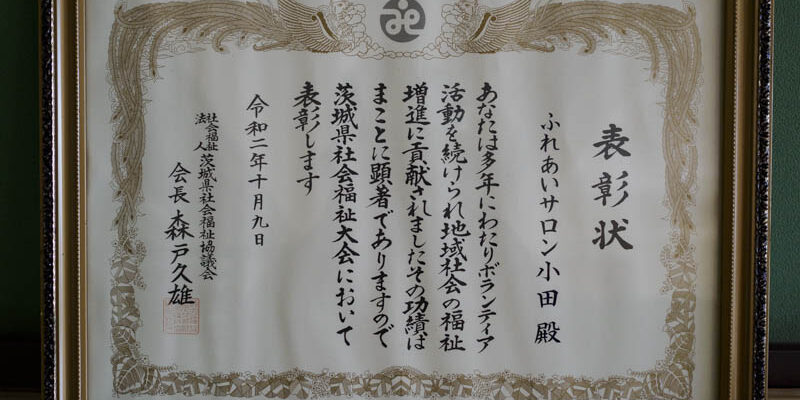 表彰状
ふれあいサロン小田 殿
あなたは多年にわたりボランティア
活動を続けられ地域社会の福祉
増進に貢献されましたその功績は
まことに顕著でありますので
茨城県社会福祉大会において
表彰します
令和二年十月九日
社会福祉法人 茨城県社会福祉協議会
会長 森戸久雄